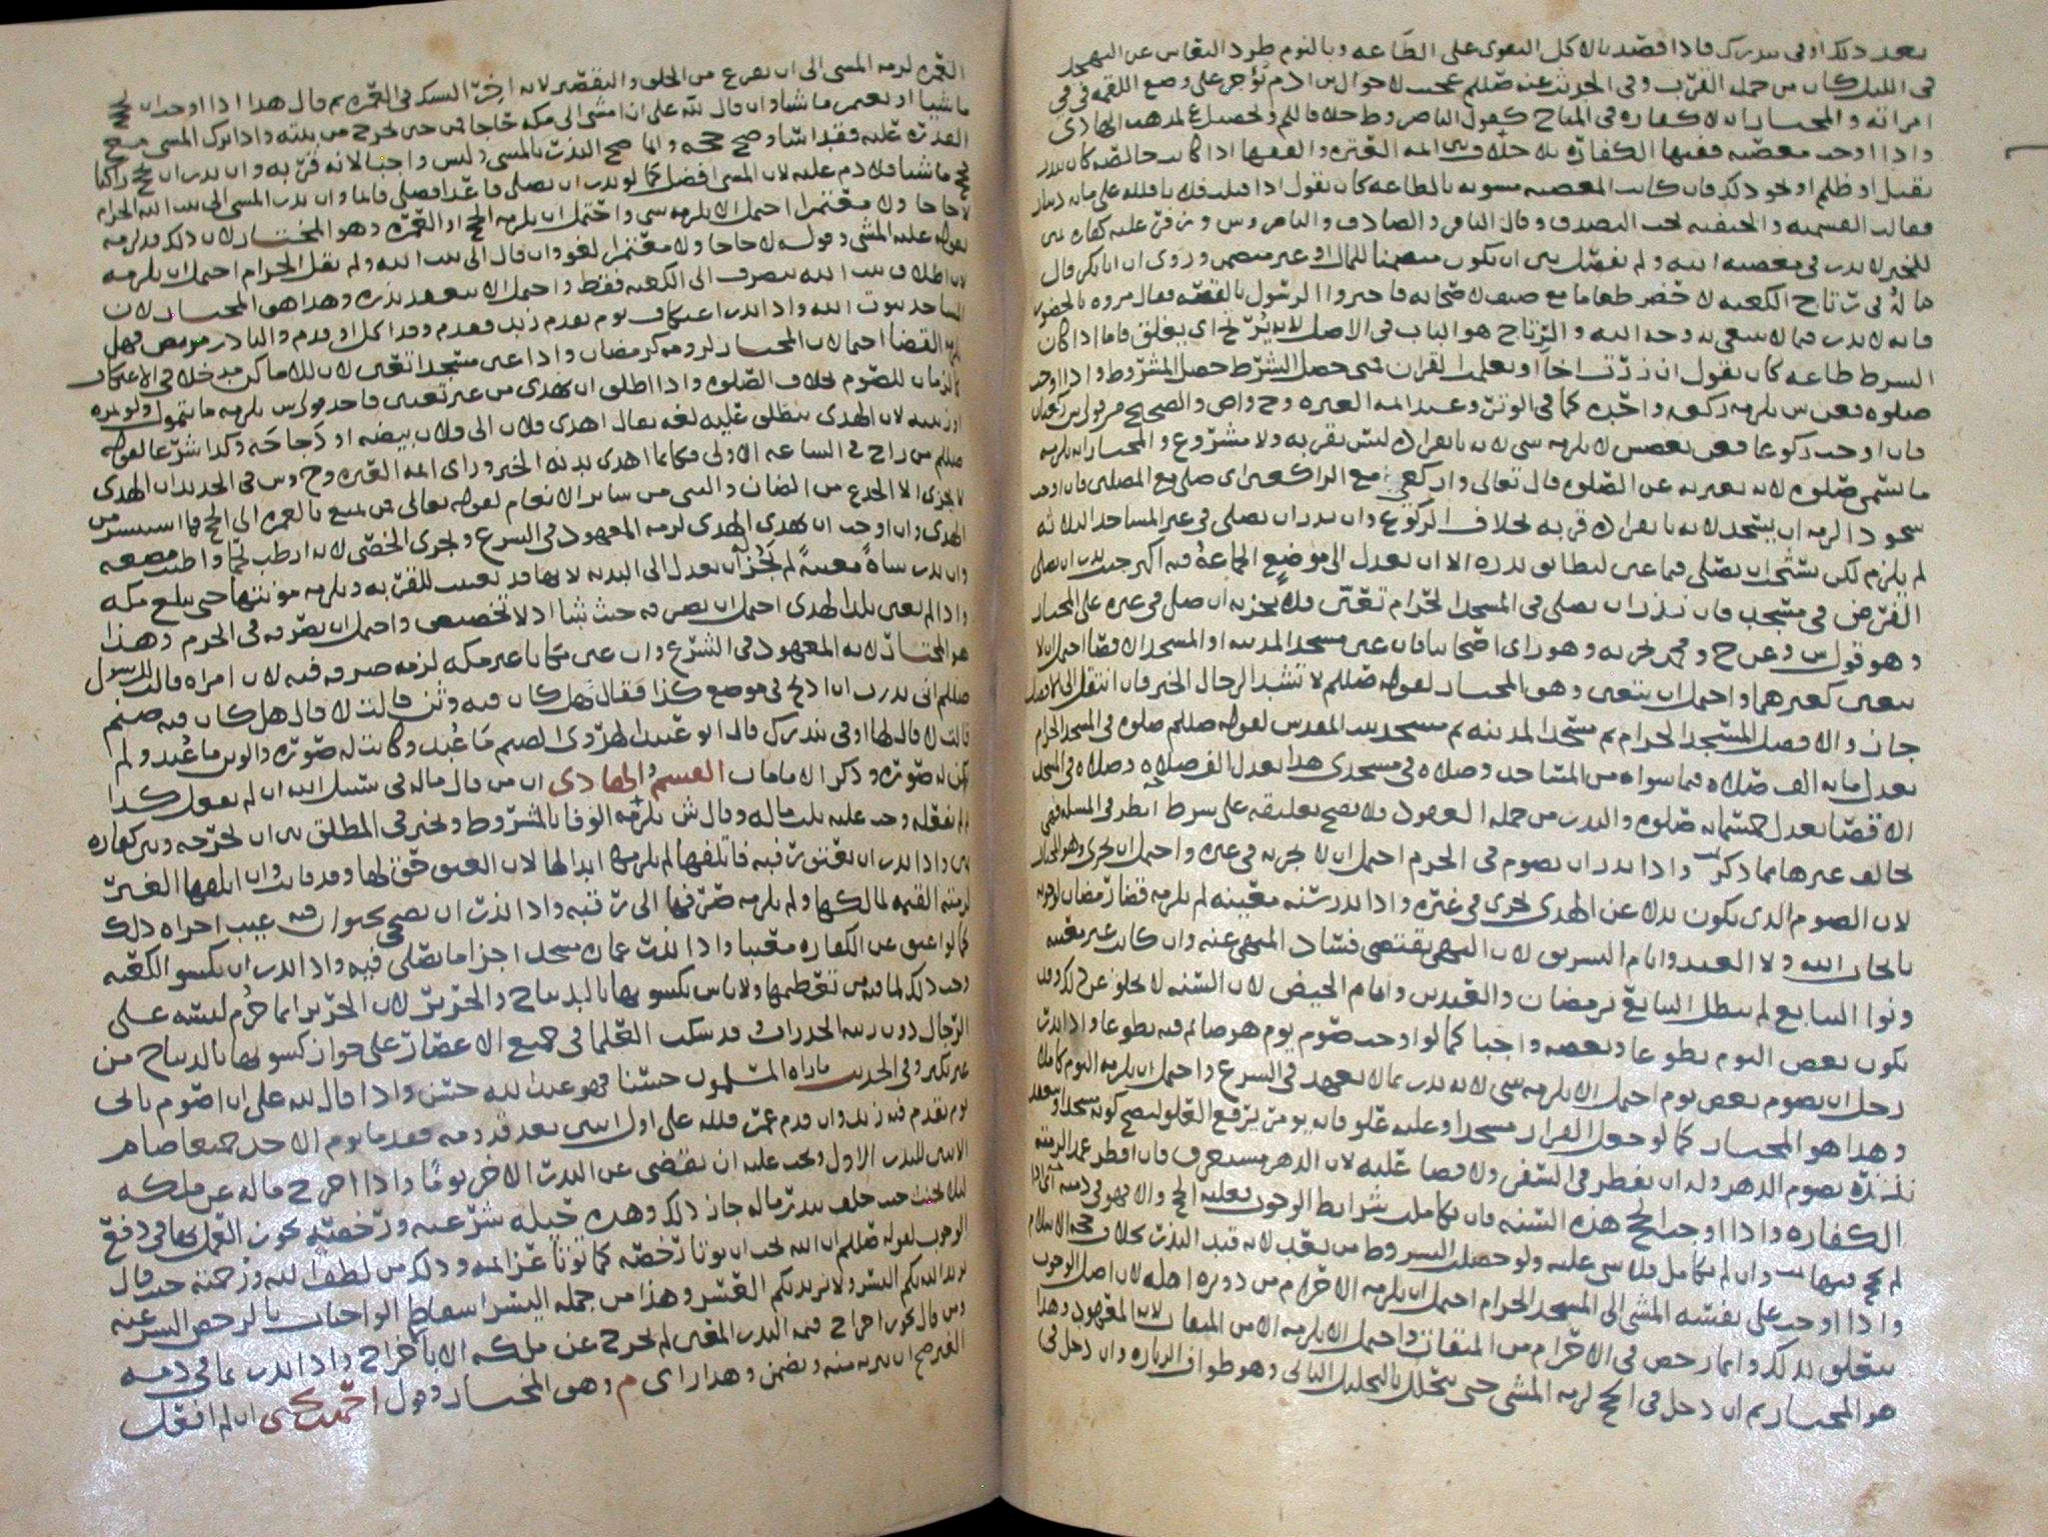 بعد ذلك اوفى بنذرك فاذا قصد بالاكل التقوى على الطاعه وبالنوم طرد النعاس عن التهجد
فى الليل كان من جمله القرب وفى الحديث عنه صللم عجبت لاحوال بن ادم يؤجر على وضع اللقمه فى فى
امراته والمختار انه لا كفاره فى المباح كقول الناصر وط خلافا للم وتحصيل ع لمذهب الهادى
واذا اوجب معصيه ففيها الكفاره بلا خلاف بين ائمه العتره والفقها اذا كانت خالصه كان نذر
بقتل او ظلم او نحو ذلك فان كانت المعصيه مشوبه بالطاعه كان يقول اذا قتلت فلانا فلله على مايه دينار
فقالت القسميه والحنفيه يجب التصدق وقال الباقر والصادق والناصر وس ون فرق عليه كفاره يمين
للخبر لا نذر فى معصيه الله ولم يفصل بين ان يكون متضمنا للمال او غير متضمن وروى ان ابا بكر قال
ماله فى رتاج الكعبه لا حضر طعاما مع ضيف لاصحابه فاخبروا الرسول بالقصه فقال مروه بالحضور
فانه لا نذر فيما لا يبتغى به وجه الله والرتاج هو الباب فى الاصل لانه يرتج اى يغلق فاما اذا كان
الشرط طاعه كان يقول ان زرت اخا او تعلمت القران فمتى حصل الشرط حصل المشروط واذا اوجب
صلوه فعن س يلزمه ركعه واحده كما فى الوتر وعند ائمه العتره وح واص والصحيح من قولى س ركعتان
فان اوجب ركوعا فعن بعضهم لا يلزمه شى لانه بانفراده ليس بقربه ولا مشروع والمختار انه يلزمه
ما يسمى صلوه لانه يعبر به عن الصلوه قال تعالى واركعى مع الراكعين اى صلى مع المصلين فان اوجب
سجودا لزمه ان يسجد لانه بانفراده قربه بخلاف الركوع وان نذر ان يصلى فى غير المساجد الثلاثه
لم يلزم لكن يستحب ان يصلى فيما عين ليطابق نذره الا ان يعدل الى موضع الجماعه فيه اكبر حيث نذر ان يصلى
الفرض فى مسجد فان نذر ان يصلى فى المسجد الحرام تعين فلا يجزيه ان صلى فى غيره على المختار
وهو قول س وعن ح ومحمد يجزيه وهو راى اصحابنا فان عين مسجد المدينه او المسجد الاقصا احتمل ان لا
يتعين كغيرهما واحتمل ان يتعين وهو المختار لقوله صللم لا تشد الرحال الخبر فان انتقل الى الافضل
جاز والافضل المسجد الحرام ثم مسجد المدينه ثم مسجد بيت المقدس لقوله صللم صلوه فى المسجد الحرام
تعدل مايه الف صلاه فيما سواه من المساجد وصلاه فى مسجدى هذا تعدل الف صلاه وصلاه فى المسجد
الاقصا تعدل خمسمايه صلوه والنذر من جمله العهود ولا يصح تعليقه على شرط انظر فى المسله فهى
تخالف غيرها مما ذكر واذا نذر ان يصوم فى الحرم احتمل ان لا يجزيه فى غيره واحتمل ان يجزى وهو المختار
لان الصوم الذى يكون بدلا عن الهدى يجزى فى غيره واذا نذر سنه معينه لم يلزمه قضا رمضان لوجوبه
بايجاب الله ولا العيد وايام التشريق لان النهى يقتضى فساد المنهى عنه وان كانت غير معينه
ونوا التتابع لم يبطل التتابع برمضان والعيدين وايام الحيض لان السنه لا تخلو عن ذلك وقد
يكون بعض اليوم تطوعا وبعضه واجبا كما لو اوجب صوم يوم هو صائم فيه تطوعا واذا نذر
رجل ان يصوم بعض يوم احتمل الا يلزمه شى لانه نذر بما لا يعهد فى الشرع واحتمل ان يلزمه اليوم كاملا
وهذا هو المختار كما لو جعل القرار مسجدا وعليه علو فانه يومر برفع العلو ليصح كونه مسجدا وينعقد
نذره بصوم الدهر وله ان يفطر فى السفر ولا قضا عليه لان الدهر مستغرق فان افطر عمدا لزمته
الكفاره واذا اوجب الحج هذه السنه فان تكاملت شرايط الوجوب فعليه الحج والا فهو فى ذمته
لم يحج فيها وان لم تكامل فلا شى عليه ولو حصلت الشروط من بعد لانه قيد النذر بخلاف حجه الاسلام
واذا اوجب على نفسه المشى الى المسجد الحرام احتمل ان يلزمه الاحرام من دويره اهله لان اصل الوجوب
يتعلق بذلك وانما رخص فى الاحرام من الميقات واحتمل الا يلزمه الا من الميقات لانه المعهود وهذا
هو المختار ثم ان دخل فى الحج لزمه المشى حتى يتحلل بالتحليل الثانى وهو طواف الزياره وان دخل فى
العمره لزمه المشى الى ان يفرغ من الحلق والتقصير لانه اخر النسك فى العمره ثم قال هذا اذا اوجب ان يحج
ماشيا او يعتمر ماشيا وان قال لله على ان امشى الى مكه حاجا فمن حين يخرج من بيته واذا ترك المشى مع
القدره عليه فقد اسا وصح حجه وانما صح النذر بالمشى وليس واجبا لانه قربه وان نذر ان يحج راكبا
فحج ماشيا فلا دم عليه لان المشى افضل كما لو نذر ان يصلى قاعدا فصلى قائما وان نذر المشى الى بيت الله الحرام
لا حاجا ولا معتمرا احتمل الا يلزمه شى واحتمل ان يلزمه الحج او العمره وهو المختار لان ذلك قد لزمه
بقوله عليه المشى وقوله لا حاجا ولا معتمرا لغو وان قال الى بيت الله ولم يقل الحرام احتمل ان يلزمه
لان اطلاق بيت الله ينصرف الى الكعبه فقط واحتمل الا ينعقد نذره وهذا هو المختار لان
المساجد بيوت الله واذا نذر اعتكاف يوم يقدم زيد فقدم وقد اكل او قدم والناذر مريض فهل
يلزم القضا احتمالان المختار لزومه كرمضان واذا عين مسجدا تعين لان للاماكن مدخلا فى الاعتكاف
كالزمان للصوم بخلاف الصلوه واذا اطلق ان يهدى من غير تعيين فاحد قولى س يلزمه ما يتمول ولو تمره
او زبيبه لان الهدى ينطلق عليه لغه يقال اهدى فلان الى فلان بيضه او دجاجه وكذا شرعا لقوله
صللم من راح فى الساعه الاولى فكانما اهدى بدنه الخبر وراى ائمه العتره وح وس فى الجديد ان الهدى
لا يجزى الا الجذع من الضان والثنى من سائر الانعام لقوله تعالى فمن تمتع بالعمره الى الحج فما استيسر من
الهدى وان اوجب ان يهدى الهدى لزمه المعهود فى الشرع ويجزى الخصى لانه ارطب لحما واطيب مضغه
وان نذر شاه معينه لم يجز ان يعدل الى البدنه لانها قد تعينت للقربه ويلزمه مونتها حتى يبلغ مكه
واذا لم يعين بلد الهدى احتمل ان يصرفه حيث شا اذ لا تخصيص واحتمل ان يصرفه فى الحرم وهذا
هو المختار لانه المعهود فى الشرع وان عين مكانا غير مكه لزمه صرفه فيه لان امراه قالت للرسول
صللم انى نذرت ان اذبح فى موضع كذا فقال هل كان فيه وثن قالت لا قال هل كان فيه صنم
قالت لا قال لها اوفى بنذرك قال ابو عبيد الهروى الصنم ما عبد وكانت له صوره والوثن ما عبد ولم
تكن له صوره وذكر الامامان القسم والهادى ان من قال ماله فى سبيل الله ان لم يفعل كذا
ثم لم يفعله وجب عليه ثلث ماله وقال ش يلزمه الوفا بالمشروط ويخير فى المطلق بين ان يخرجه وبين كفاره
يمين واذا نذر ان يعتق رقبه فاتلفها لم يلزمه ابدالها لان العتق حق لها وقد فات وان اتلفها الغير
لزمته القيمه لمالكها ولم يلزمه صرفها الى رقبه واذا نذر ان يضحى بحيوان فيه عيب اجزاه ذلك
كما لو اعتق عن الكفاره معيبا واذا نذر عماره مسجد اجزا ما يصلى فيه واذا نذر ان يكسو الكعبه
وجب ذلك لما فيه من تعظيمها ولا باس بكسوتها بالديباج والحرير لان الحرير انما حرم لبسه على
الرجال دون ربه الخدرات وقد سكت العلما فى جميع الاعصار على جواز كسوتها بالديباج من
غير نكير وفى الحديث ماراه المسلمون حسنا فهو عند الله حسن واذا قال لله على ان اصوم بالحى
يوم يقدم فيه زيد وان قدم عمر فلله على اول اثنين بعد قدومه فقدما يوم الاحد جميعا صام
الاثنين للنذر الاول ويجب عليه ان يقضى عن النذر الاخر يوما واذا اخرج ماله عن ملكه
لئلا يحنث حيث حلف بنذر ماله جاز ذلك وهذه حيله شرعيه ورخصه يجوز العمل بها فى دفع
الوجوب لقوله صللم ان الله يحب ان توتا رخصه كما توتا عزائمه وذلك من لطف الله ورحمته حيث قال
يريد الله بكم اليسر ولا يريد بكم العسر وهذا من جمله اليسر اسقاط الواجبات بالرخص اليسر عنه
وس قال يجوز اخراج قيمه النذر المعين لم يخرج عن ملكه الا باخراج واذا نذر بما فى ذمه
الغير صح ان يبريه منه ويضمن وهذا راى م وهو المختار وقول احمد بن يحيى ان لم افعل